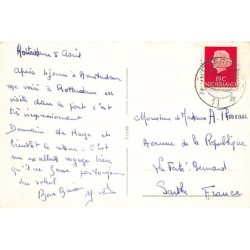 Rotterdam 5 Avril
Après 4 jours à Amsterdam
me voici à Rotterdam en
visite dans le port c'est
très impressionant
Demain la Haye et
bientôt le retour. C'est
un excellent voyage bien
qu'il ne fasse pas
du soleil
Bons Baisers
15 C
NEDERLAND
Monsieur et Madame A.
Avenue de la République
La Ferté-Bernard
Sarthe France